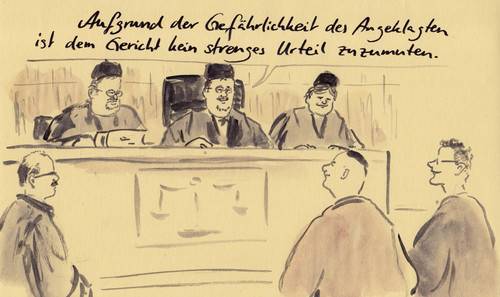 Aufgrund der Gefährlichkeit des Angeklagten
ist dem Gericht kein strenges Urteil zuzumuten.